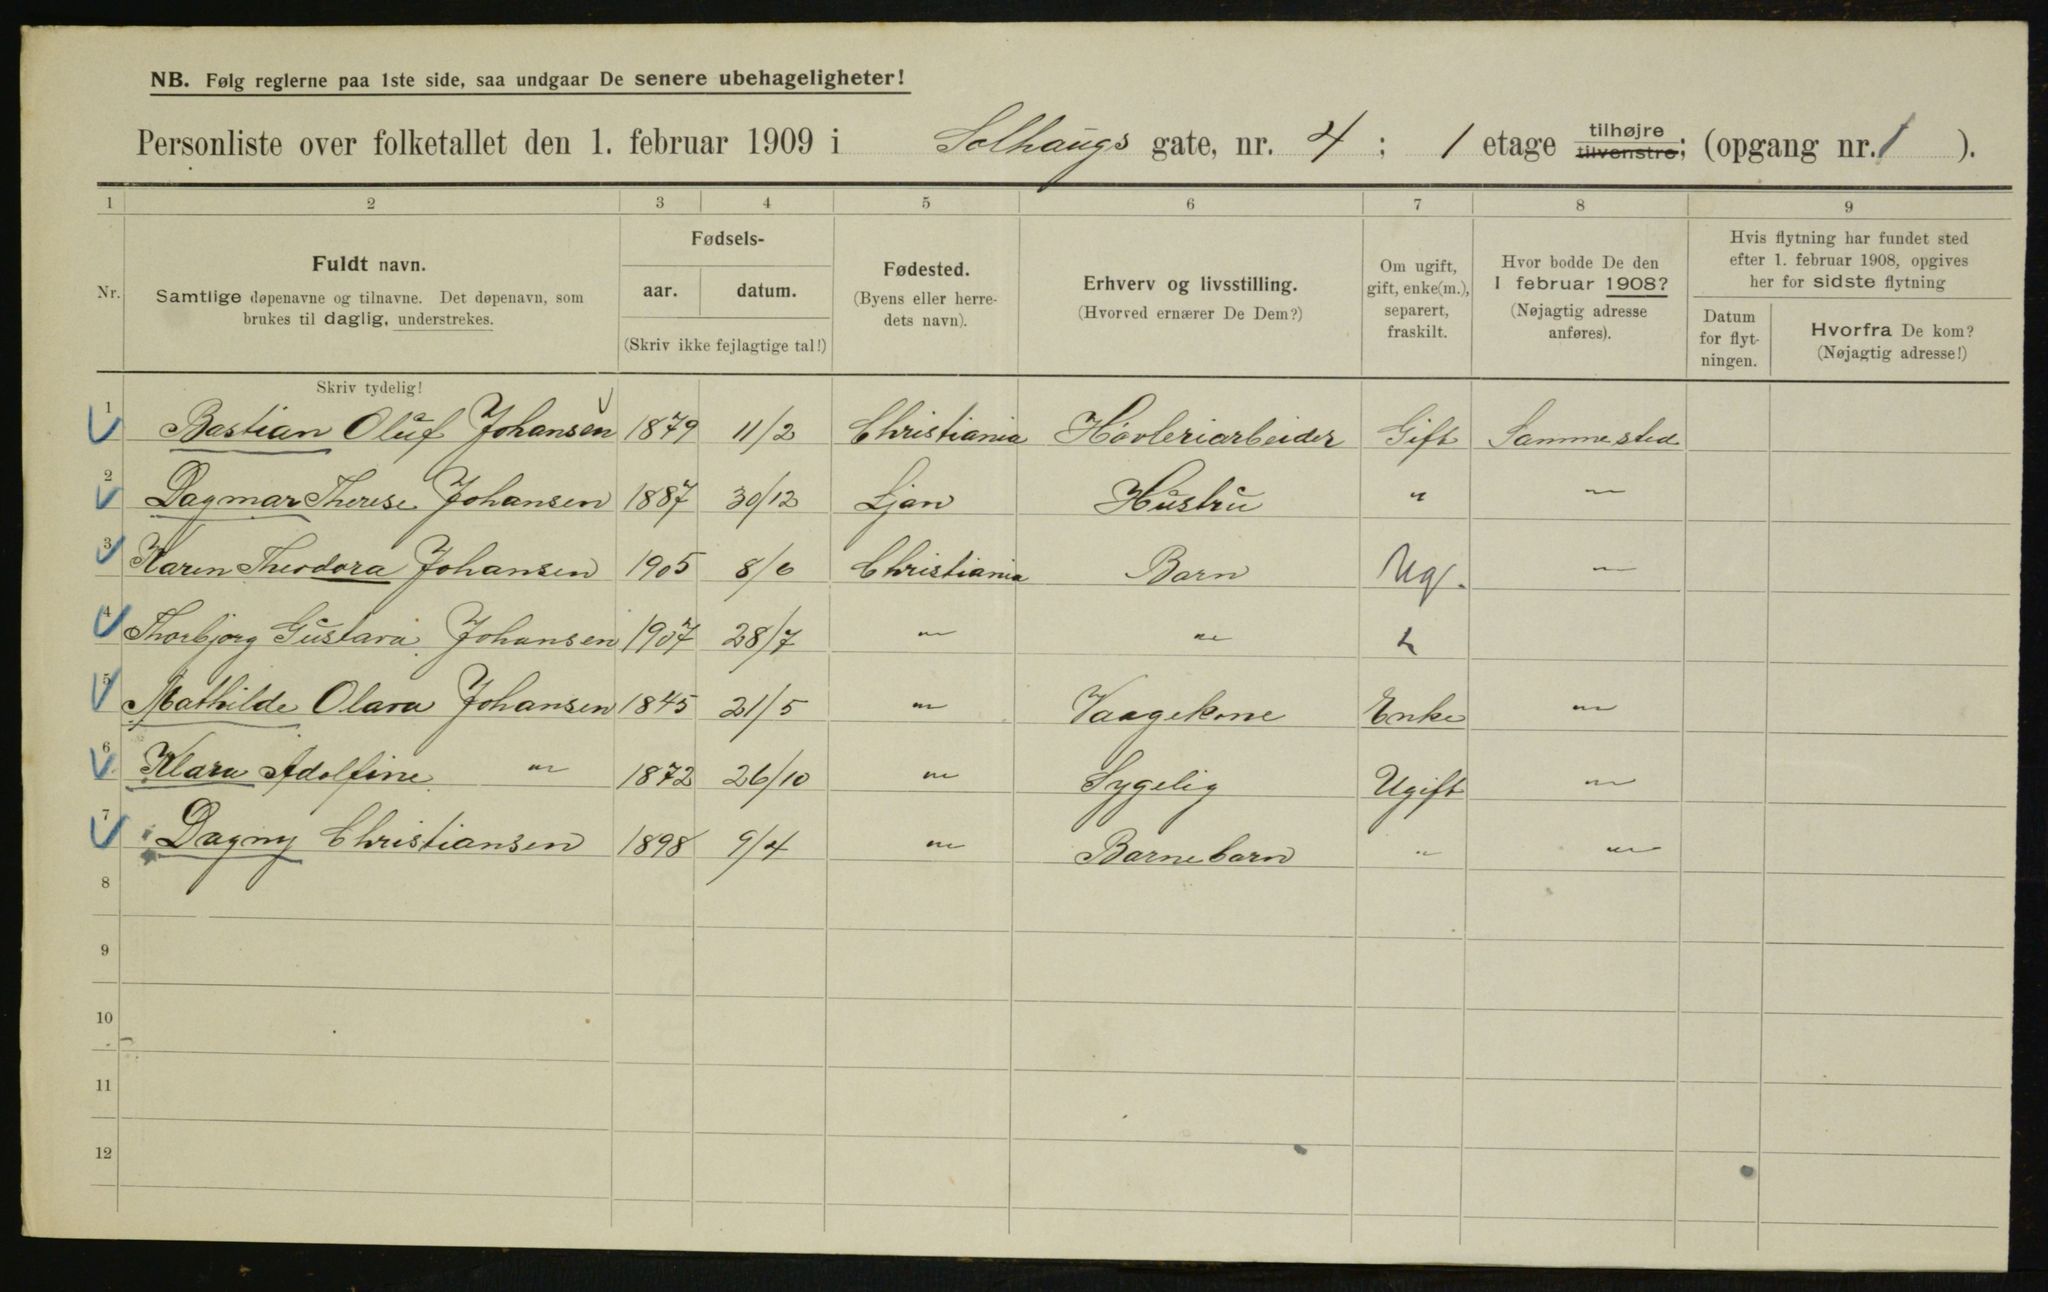 NB. Følg reglerne paa 1ste side, saa undgaar De senere ubehageligheter!
Personliste over folketallet den 1. februar 1909 i Solhaugs gate, nr. 4 ; 1 etage tilhøjre tilvenstre; (opgang nr. 1 ).
1 2 3 4 5 6 7 8 9
Nr.
Fuldt navn.
Samtlige døpenavne og tilnavne. Det døpenavn, som
brukes til daglig, understrekes.
Fødsels-
aar. datum.
(Skriv ikke fejlagtige tal!)
Fødested.
(Byens eller herre-
dets navn).
Erhverv og livsstilling.
(Hvorved ernærer De Dem?)
Om ugift,
gift, enke(m.),
separert,
fraskilt.
Hvor bodde De den
1 februar 1908?
(Nøjagtig adresse
anføres).
Hvis flytning har fundet sted
efter 1. februar 1908, opgives
her for sidste flytning
Datum
for flyt-
ningen.
Hvorfra De kom?
(Nøjagtig adresse!)
Skriv tydelig!
1 Bastian Oluf Johansen 1879 11/2 Christiania Høvleriarbeider Gift Samme sted
2 Dagmar Therese Johansen 1887 30/12 Ljan Hustru " "
3 Karen Theodora Johansen 1905 8/6 Christiania Barn Ug. "
4 Thorbjørg Gustava Johansen 1907 28/7 " "
5 Mathilde Olava Johansen 1845 21/5 " Vaagekone Enke "
6 Klara Adolfine " 1872 26/10 " Sygelig Ugift "
7 Dagny Christiansen 1898 9/4 " Barnebarn " "
8
9
10
11
12